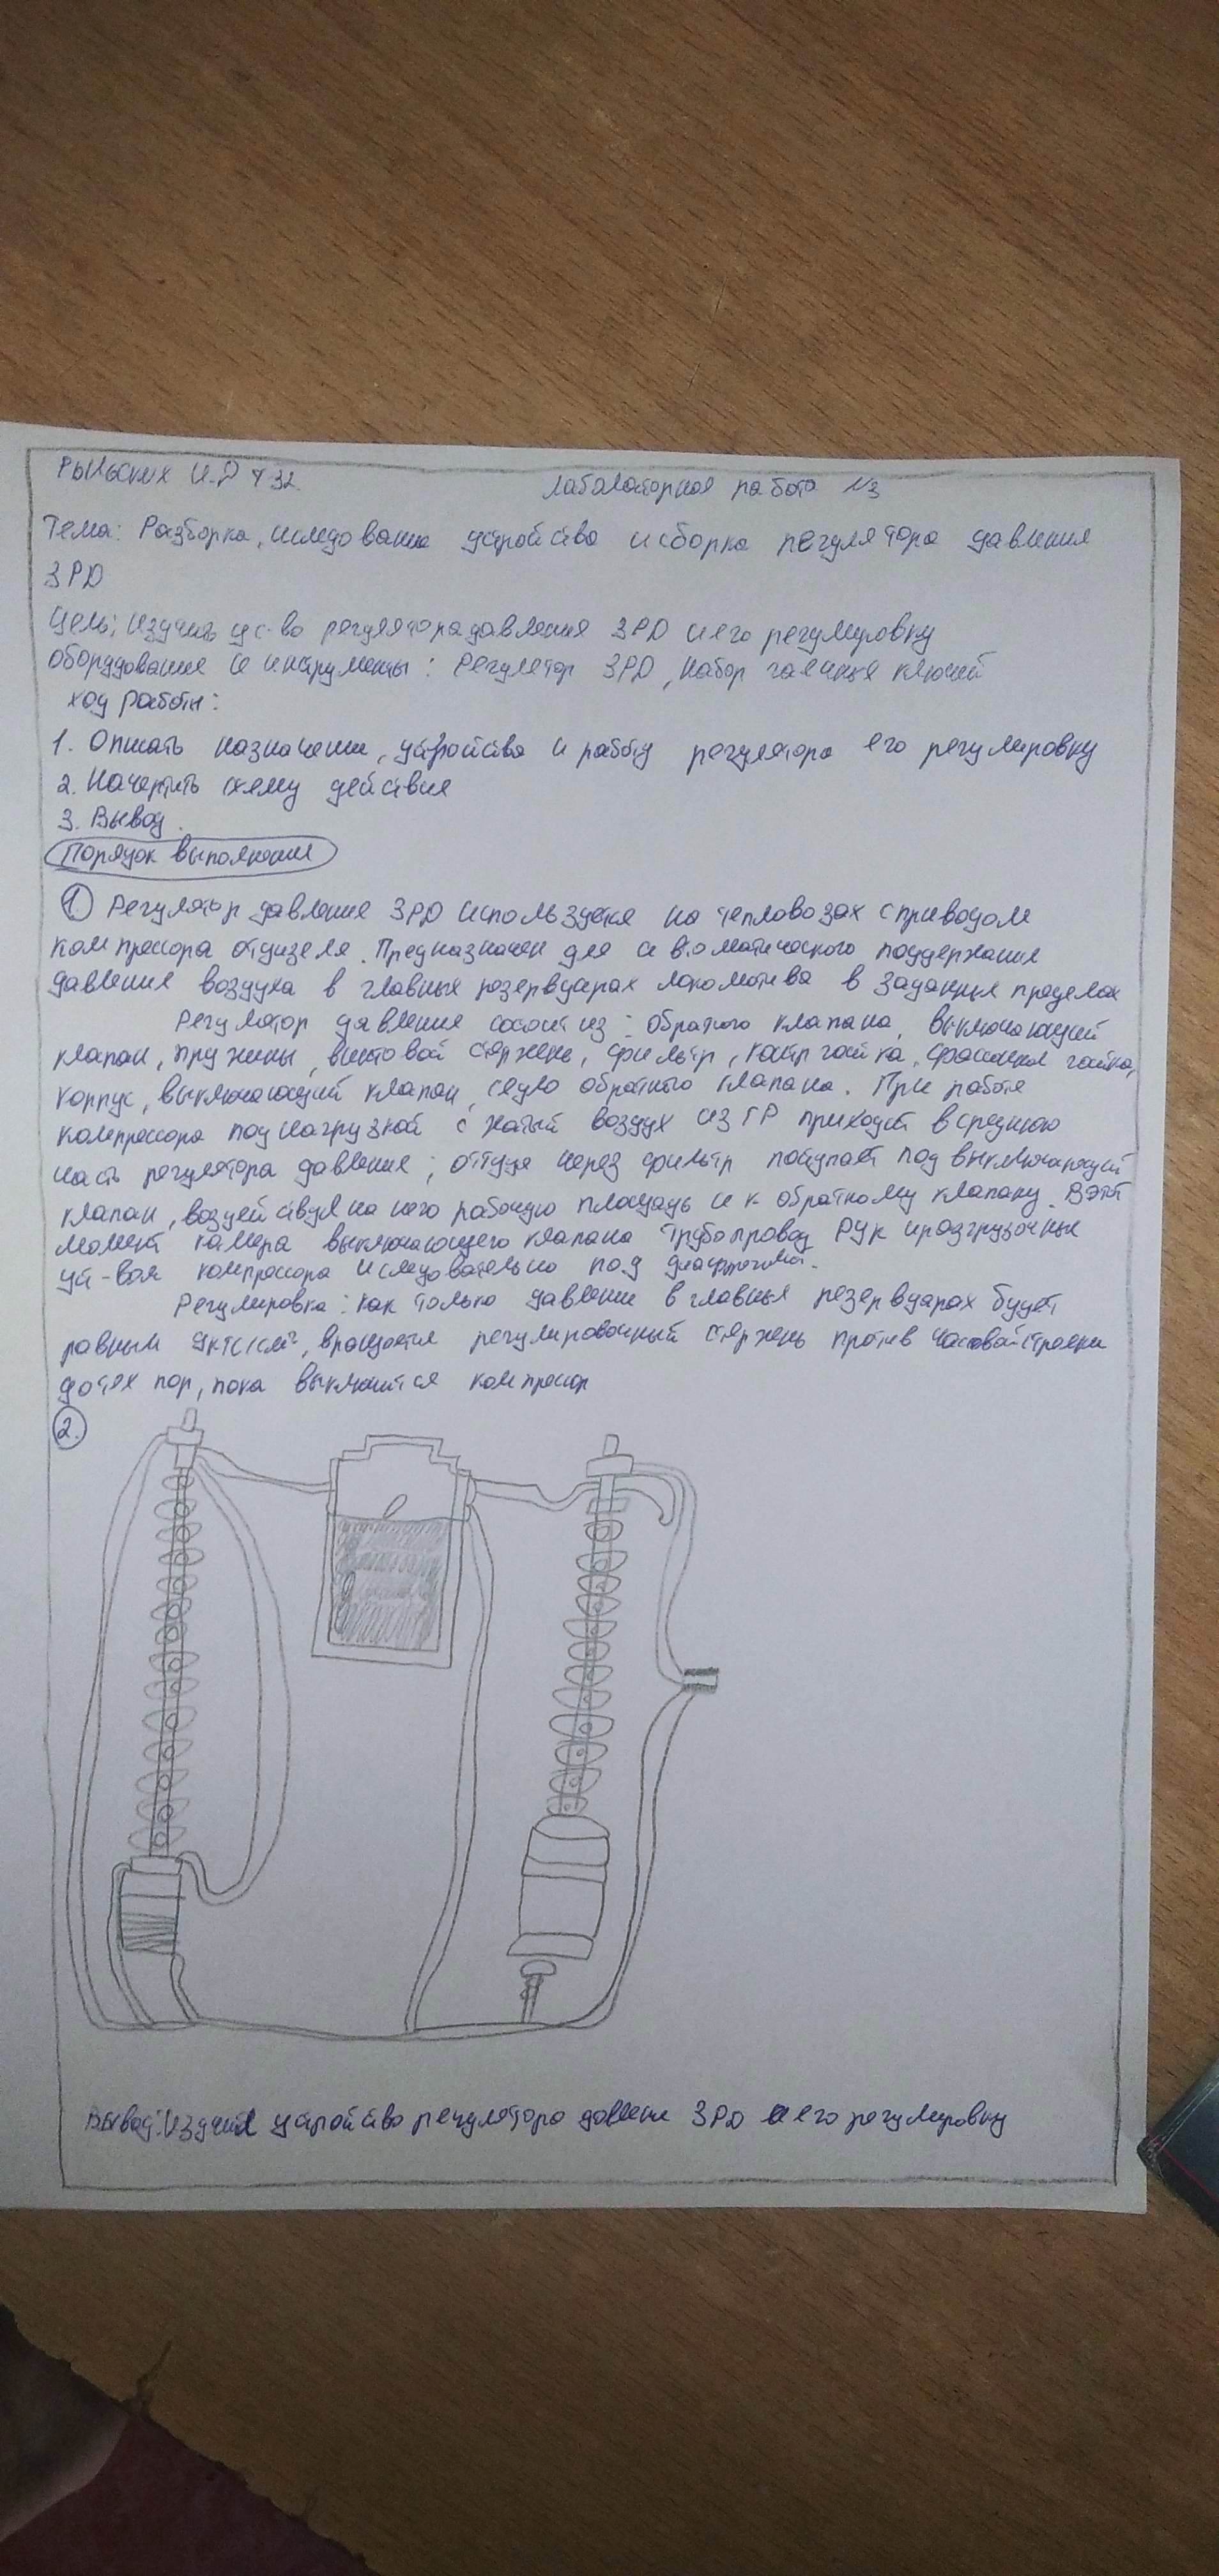 Рыльских И.Р Т 32
Лабалаторная работа №3
Тема: Разборка, иследование устройства и сборка регулятора давления
3РD
Цель: изучить ус-во регулятора давления 3РD и его регулировку
оборудование и инструменты: Регулятор 3РD, набор гаечных ключей
ход работы:
1. Описать назначение, устройство и работу регулятора его регулировку
2. Начертить схему действия
3. Вывод.
Порядок выполнения
1 Регулятор давления 3РD используется на тепловозах с приводом
компрессора от дизеля. Предназначен для автоматического поддержания
давления воздуха в главных резервуарах локомотива в заданных пределах
Регулятор давления состоит из: обратного клапана, выключающий
клапан, пружины, винтовой стержень, фильтр, контргайка, гайка,
корпус, выключающий клапан, седло обратного клапана. При работе
компрессора под нагрузкой сжатый воздух из ГР приходит в среднюю
часть регулятора давления; оттуда через фильтр поступает под выключающий
клапан, воздействуя на него рабочую площадь и к обратному клапану. В этот
момент камера выключающего клапана трубопровод и разгрузочные
ус-вом компрессора исследовательно под
Регулировка: как только давление в главных резервуарах будет
равным вращается регулировочный стержень против часовой стрелки
до тех пор, пока выключится компрессор
2.
Вывод: Изучил устройство регулятора давления 3РD и его регулировку